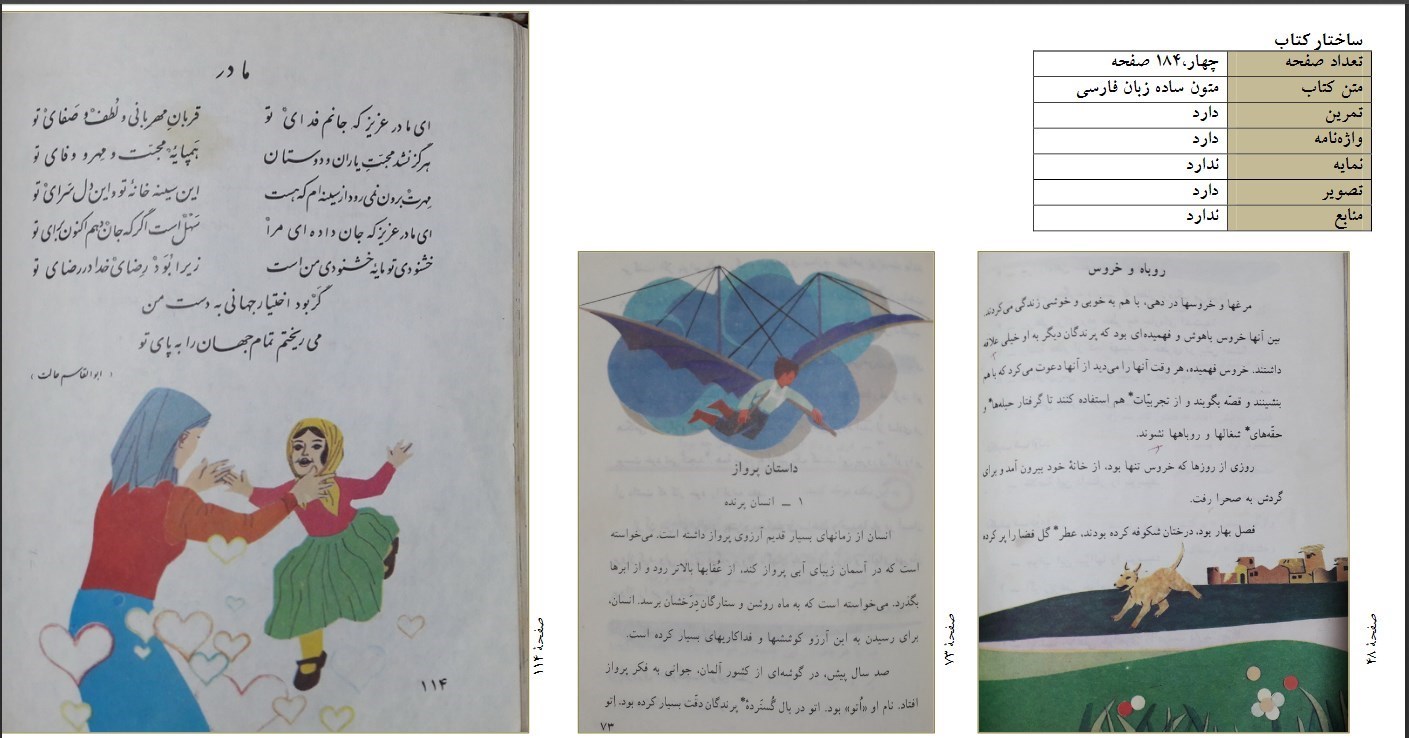 ساختار کتاب
تعداد صفحه چهار،۱۸۴ صفحه
متن کتاب متون ساده زبان فارسی
تمرین دارد
واژه‌نامه دارد
نمایه ندارد
تصویر دارد
منابع ندارد
روباه و خروس
مرغها و خروسها در دهی، با هم به خوبی و خوشی زندگی می‌کردند.
بین آنها خروس باهوش و فهمیده‌ای بود که پرندگان دیگر به او خیلی علاقه
داشتند. خروس فهمیده، هر وقت آنها را می‌دید از آنها دعوت می‌کرد که با هم
بنشینند و قصّه بگویند و از تجربیّات* هم استفاده کنند تا گرفتار حیله‌ها* و
حقّه‌های* شغالها و روباهها نشوند.
روزی از روزها که خروس تنها بود، از خانهٔ خود بیرون آمد و برای
گردش به صحرا رفت.
فصل بهار بود، درختان شکوفه کرده بودند، عطر* گل فضا را پر کرده
صفحهٔ ۴۸
داستان پرواز
۱ ــ انسان پرنده
انسان از زمانهای بسیار قدیم آرزوی پرواز داشته است. می‌خواسته
است که در آسمان زیبای آبی پرواز کند، از عُقابها بالاتر رود و از ابرها
بگذرد. می‌خواسته است که به ماه روشن و ستارگان دِرَخشان برسد. انسان،
برای رسیدن به این آرزو کوششها و فداکاریهای بسیار کرده است.
صد سال پیش، در گوشه‌ای از کشور آلمان، جوانی به فکر پرواز
افتاد. نام او «اُتو» بود. اتو در بال گُستَردهٔ* پرندگان دقّت بسیار کرده بود. اتو
۷۳
صفحهٔ ۷۳
مادر
ای مادر عزیز که جانم فدای تو قربان مهربانی و لُطف و صَفای تو
هرگز نشد محبّت یاران و دوستان هَمپایهٔ محبّت و مِهر و وفای تو
مِهرت برون نمی‌رود از سینه‌ام که هست این سینه خانهٔ تو و این دل سَرای تو
ای مادر عزیز که جان داده‌ای مرا سَهْل است اگر که جان دهم اکنون بَرای تو
خشنودی تو مایهٔ خشنودی من است زیرا بُوَد رِضای خدا در رضای تو
گر بود اختیار جهانی به دست من
می ریختم تمام جهان را به پای تو
(ابوالقاسم حالت)
۱۱۴
صفحهٔ ۱۱۴